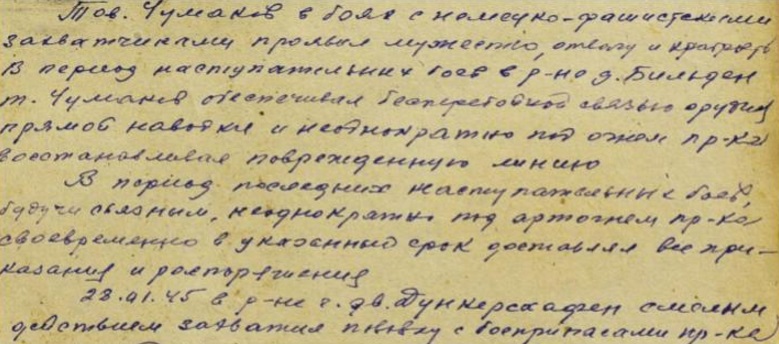 Тов. Чумаков в боях с немецко-фашистскими
захватчиками проявил мужество, отвагу и храбрость
В период наступательных боев в р-не д. Бильден
т. Чумаков обеспечивал бесперебойной связью орудия
прямой наводки и неоднократно под огнем пр-ка
восстанавливал поврежденную линию
В период последних наступательных боев,
будучи связным, неоднократно под артогнем пр-ка
своевременно в указанный срок доставлял все при-
казания и распоряжения
28.01.45 в р-не г. дв. Дункерсхафен смелым
действием захватил повозку с боеприпасами пр-ка